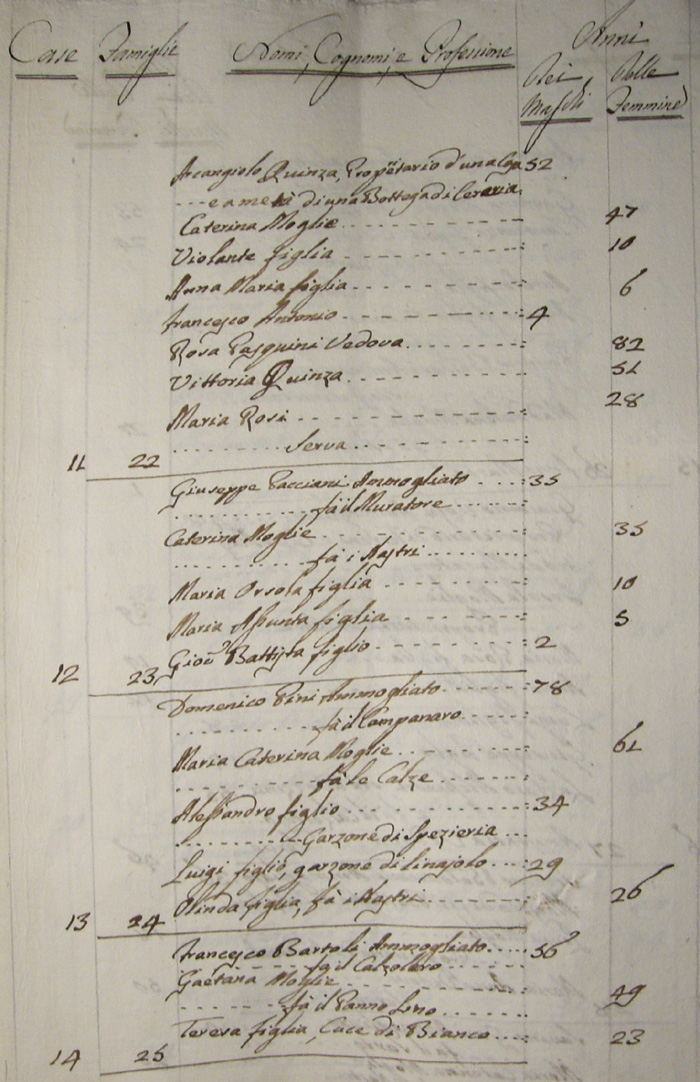 Case Famiglie Nomi, Cognomi, e Professione Anni
Dei Maschi Delle Femmine
Arcangiolo Quinza, Proprietario d'una Casa 52
e a metà di una Bottega di Ceraria
Caterina Moglie 47
Violante figlia 10
Anna Maria figlia 6
Francesco Antonio 4
Rosa Pasquini Vedova 82
Vittoria Quinza 51
Maria Rosi 28
Serva
11 22
Giuseppe Pacciani Ammogliato 35
fà il Muratore
Caterina Moglie 35
fà i Nastri
Maria Orsola figlia 10
Maria Assunta figlia 5
Giov. Battista figlio 2
12 23
Domenico Pini Ammogliato 78
fà il Campanaro
Maria Caterina Moglie 61
fà le Calze
Alessandro figlio 34
Garzone di Spezieria
Luigi figlio, garzone di linajolo 29
Olinda figlia, fà i Nastri 26
13 24
Francesco Bartoli Ammogliato 56
fà il Calzolero
Gaetana Moglie
fà il Panno Lino 49
Teresa figlia, Cuce di Bianco 23
14 25